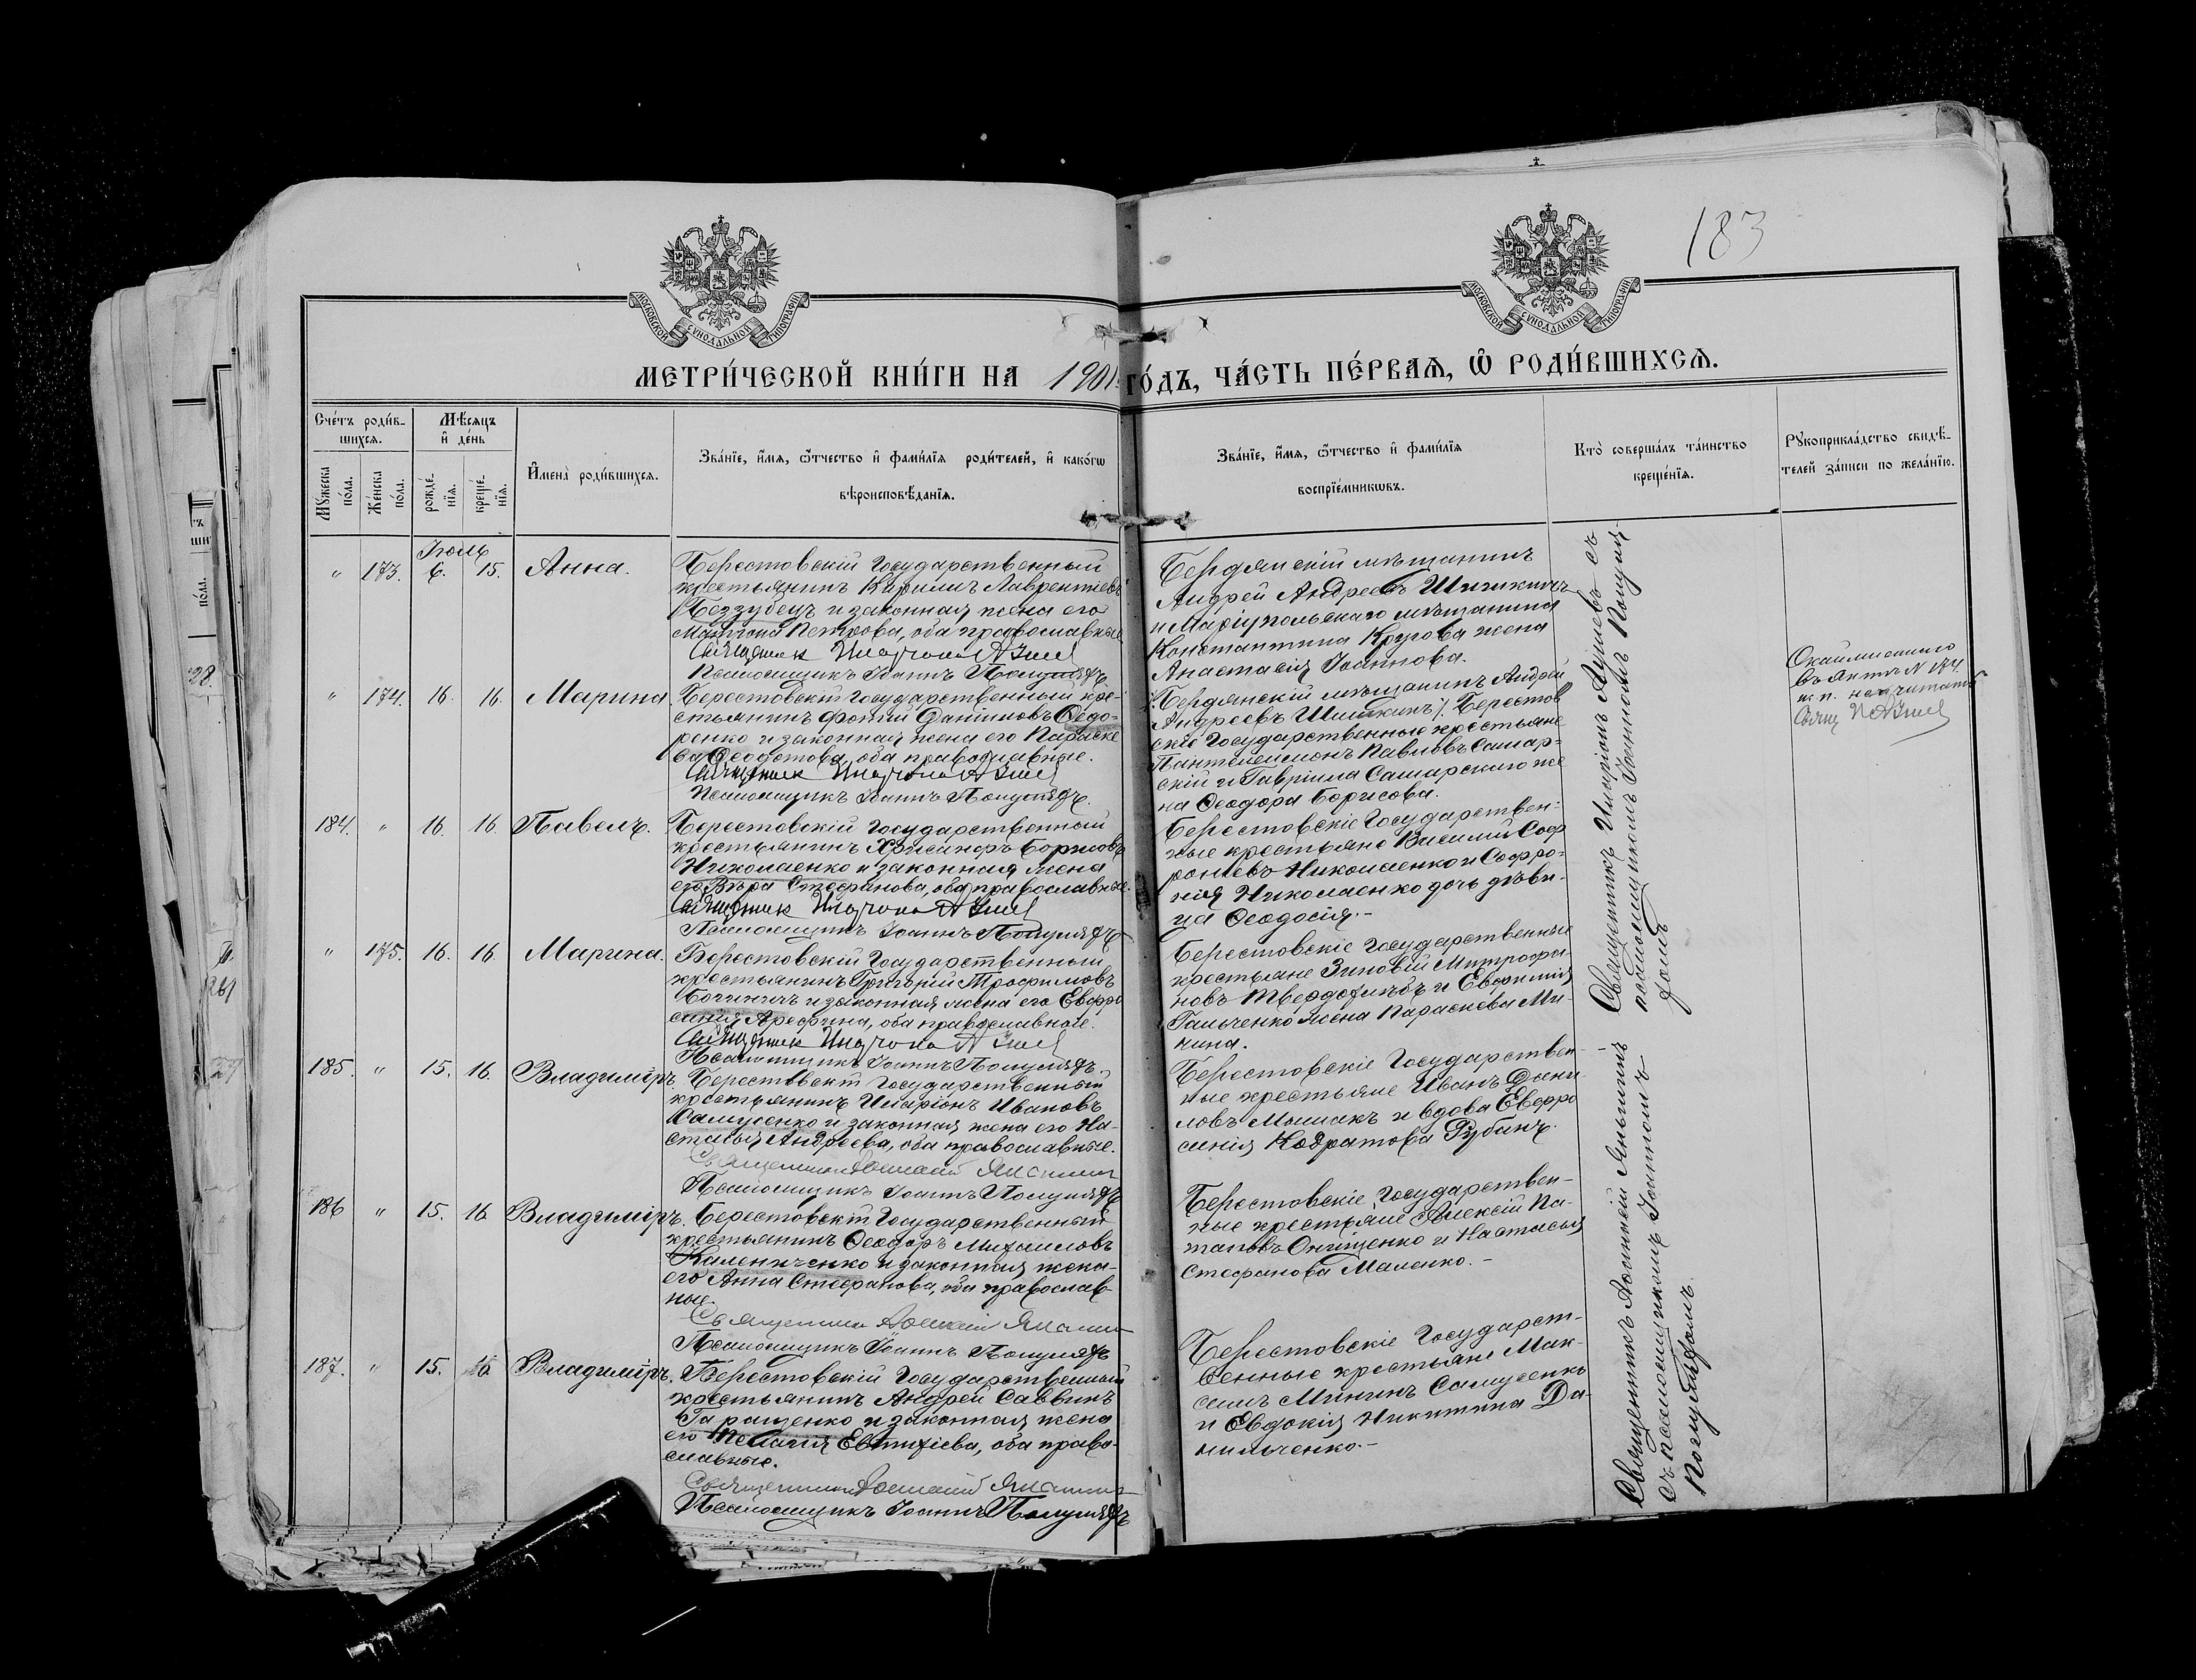 183
МОСКОВСКОЙ СѴНОДАЛЬНОЙ ТИПОГРАФІИ
МОСКОВСКОЙ СѴНОДАЛЬНОЙ ТИПОГРАФІИ
МЕТРИ́ЧЕСКОЙ КНИ́ГИ НА 1901 ГО́ДЪ, ЧА́СТЬ ПЕ́РВАѦ, Ѽ РОДИ́ВШИХСѦ.
Сче́тъ роди́в-
шихсѧ.
Мꙋ́жеска по́ла.
Же́нска по́ла.
Мѣ́сѧцъ
и҆ де́нь
рожде́-
нїѧ.
креще́-
нїѧ.
И҆мена̀ роди́вшихсѧ.
Зва́нїе, и҆́мѧ, ѻ҆́тчество и҆ фами́лїѧ роди́телей, и҆ како́гѡ
вѣроисповѣ́данїѧ.
Зва́нїе, и҆́мѧ, ѻ҆́тчество и҆ фами́лїѧ
воспрїе́мникѡвъ.
Кто̀ соверша́лъ та́инство
креще́нїѧ.
Рꙋкоприкла́дство свидѣ́-
телей за́писи по жела́нїю.
Іюль
" 173. 6. 15. Анна.
Берестовскій Государственный
крестьянинъ Кириллъ Лаврентіевъ
Беззубецъ и законная жена его
Матрона Петрова, оба православные
Священник Иларіонъ
Псаломщикъ Іоаннъ
Бердянскій мѣщанинъ
Андрей Андреевъ Шишкинъ
и Маріупольскаго мѣщанина
Константина Кругова жена
Анастасія Іоаннова.
" 174. 16. 16. Марина.
Берестовскій Государственный кре-
стьянинъ Фотій Даніиловъ Ѳедо-
ренко и законная жена его Параске
ва Ѳеодотова, оба православные.
Священник Иларіонъ
Псаломщикъ Іоаннъ
Бердянскій мѣщанинъ Андрей
Андреевъ Шишкинъ/. Берестов
скіе Государственные крестьяне
Пантелеимонъ Павловъ Самар-
скій и Гавріила Самарскаго же
на Ѳеодора Борисова.
Окаймленнаго
въ актѣ № 174.
не читать
Свящ
184. " 16. 16. Павелъ.
Берестовскій Государственный
крестьянинъ Хрисанфъ Борисовъ
Николаенко и законная жена
его Вѣра Стефанова, оба православные.
Священник Иларіонъ
Псаломщикъ Іоаннъ
Берестовскіе Государствен-
ные крестьяне Василій Соф
роніевъ Николаенко и Софро-
нія Николаенко дочь дѣви-
ца Ѳеодосія.-
" 175. 16. 16. Марина.
Берестовскій Государственный
крестьянинъ Григорій Трофимовъ
и законная жена его Евфро
синія Арефина, оба православные.
Священник Иларіонъ
Псаломщикъ Іоаннъ
Берестовскіе Государственные
крестьяне Зиновій Митрофа-
новъ Твердохлѣбъ и Евфимія
Гальченко жена Параскева Ми-
кина.
185. " 15. 16. Владиміръ.
Берестовскій Государственный
крестьянинъ Иларіонъ Ивановъ
Самусенко и законная жена его На-
стасья Андреева, оба православные.
Священникъ
Псаломщикъ Іоаннъ
Берестовскіе Государствен-
ные крестьяне Иванъ Дани
ловъ Мошакъ и вдова Евфро
синія Кодратова Рубанъ.
186 " 15. 16. Владиміръ.
Берестовскій Государственный
крестьянинъ Ѳеодоръ Михаиловъ
Калениченко и законная жена
его Анна Стефанова, оба православ-
ные.
Священникъ
Псаломщикъ Іоаннъ
Берестовскіе Государствен-
ные крестьяне Алексій По-
таповъ Онищенко и Настасья
Стефанова Маленко.-
187. " 15. 16. Владиміръ.
Берестовскій Государственный
крестьянинъ Андрей Саввинъ
Таращенко и законная жена
его Пелагія Евтихіева, оба право-
славные.
Священникъ
Псаломщикъ Іоаннъ
Берестовскіе Государст-
венные крестьяне Мак-
симъ Мининъ Самусенко
и Евдокія Никитина Да-
нильченко.-
Священникъ Иларіонъ съ
псаломщикомъ Іоанномъ
Священникъ
съ псаломщикомъ Іоанномъ